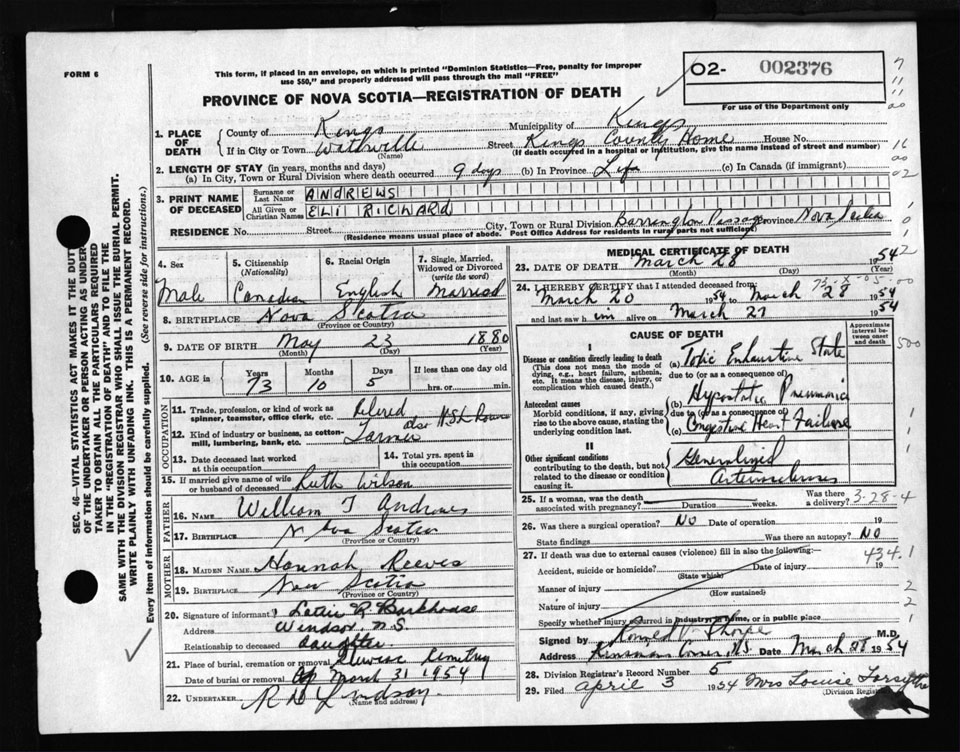 FORM 6
This form, if placed in an envelope, on which is printed "Dominion Statistics—Free, penalty for improper
use $50," and properly addressed will pass through the mail "FREE"
PROVINCE OF NOVA SCOTIA—REGISTRATION OF DEATH
O2- 002376
For use of the Department only
1. PLACE OF DEATH { County of Kings Municipality of Kings
If in City or Town Waterville Street Kings County Home House No.
(Name) (If death occurred in a hospital or institution, give the name instead of street and number)
2. LENGTH OF STAY (in years, months and days)
(a) In City, Town or Rural Division where death occurred 9 days (b) In Province Life (c) In Canada (if immigrant)
3. PRINT NAME OF DECEASED { Surname or Last Name ANDREWS
All Given or Christian Names ELI RICHARD
RESIDENCE No. Street City, Town or Rural Division Barrington Passage Province Nova Scotia
(Residence means usual place of abode. Post Office Address for residents in rural parts not sufficient)
4. Sex Male
5. Citizenship (Nationality) Canadian
6. Racial Origin English
7. Single, Married, Widowed or Divorced (write the word) Married
8. BIRTHPLACE Nova Scotia
(Province or Country)
9. DATE OF BIRTH May 23 1880
(Month) (Day) (Year)
10. AGE in Years 73 Months 10 Days 5 If less than one day old hrs. or min.
OCCUPATION
11. Trade, profession, or kind of work as spinner, teamster, office clerk, etc. Retired
also
12. Kind of industry or business, as cotton-mill, lumbering, bank, etc. Farmer
13. Date deceased last worked at this occupation
14. Total yrs. spent in this occupation
15. If married give name of wife or husband of deceased Ruth Wilson
FATHER
16. NAME William T Andrews
17. BIRTHPLACE Nova Scotia
(Province or Country)
MOTHER
18. MAIDEN NAME Hannah Reeves
19. BIRTHPLACE Nova Scotia
(Province or Country)
20. Signature of informant R Barkhouse
Address Windsor, N.S.
Relationship to deceased daughter
21. Place of burial, cremation or removal Cemetery
Date of burial or removal March 31 1954
22. UNDERTAKER R D Lindsay
(Name and address)
MEDICAL CERTIFICATE OF DEATH
23. DATE OF DEATH March 28 1954
(Month) (Day) (Year)
24. I HEREBY CERTIFY that I attended deceased from:
March 20 1954 to March 28 1954
and last saw him alive on March 27 1954
CAUSE OF DEATH
Approximate interval between onset and death
I
Disease or condition directly leading to death
(This does not mean the mode of dying, e.g., heart failure, asthenia, etc. It means the disease, injury, or complication which caused death.)
(a) Toxic Exhaustive State
due to (or as a consequence of)
Antecedent causes
Morbid conditions, if any, giving rise to the above cause, stating the underlying condition last.
(b) Hypostatic Pneumonia
due to (or as a consequence of)
(c) Congestive Heart Failure
II
Other significant conditions
contributing to the death, but not related to the disease or condition causing it.
Generalized
Arteriosclerosis
25. If a woman, was the death associated with pregnancy? Duration weeks. Was there a delivery?
3-28-4
26. Was there a surgical operation? NO Date of operation 19
State findings Was there an autopsy? NO
27. If death was due to external causes (violence) fill in also the following:—
434.1
Accident, suicide or homicide? Date of injury 19
(State which)
Manner of injury
(How sustained)
Nature of injury
Specify whether injury occurred in industry, in home, or in public place
Signed by M.D.
Address Kinsmans Corner, N.S. Date March 28 1954
28. Division Registrar's Record Number 5
29. Filed April 3 1954 Mrs Louise Forsythe
(Division Registrar)
SEC. 46—VITAL STATISTICS ACT MAKES IT THE DUTY
OF THE UNDERTAKER OR PERSON ACTING AS UNDER-
TAKER TO OBTAIN ALL THE PARTICULARS REQUIRED
IN THE "REGISTRATION OF DEATH" AND TO FILE THE
SAME WITH THE DIVISION REGISTRAR WHO SHALL ISSUE THE BURIAL PERMIT.
WRITE PLAINLY WITH UNFADING INK. THIS IS A PERMANENT RECORD.
Every item of information should be carefully supplied. (See reverse side for instructions.)